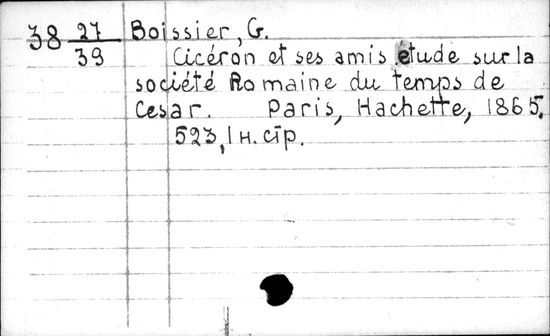 38 27/39 Boissier, G.
Cicéron et ses amis étude sur la
société Romaine du temps de
Cesar. Paris, Hachette, 1865.
523, 1 н. стр.